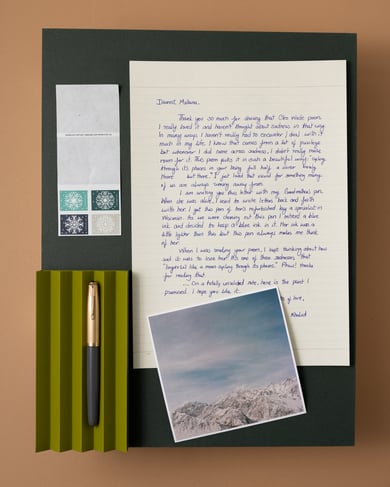 Dearest Malaina,
Thank you so much for sharing that Clint Wade poem.
I really loved it and haven't thought about sadness in that way.
In many ways I haven't really had to encounter / deal with it
much in my life. I know that comes from a lot of privilege
but whenever I did come across sadness, I didn't really make
room for it. This poem puts it in such a beautiful way: "cycling
through its phases in your being full, half, a sliver barely
there but there." I just love that visual for something many
of us are always running away from.
I am writing you this letter with my Grandmother's pen.
When she was alive, I used to write letters back and forth
with her. I got this pen of hers refurbished by a specialist in
Wisconsin. As we were cleaning out this pen I noticed a blue
ink and decided to keep a blue ink in it. Her ink was a
little lighter than this but this pen always makes me think
of her.
When I was reading your poem, I kept thinking about how
sad it was to lose her. It's one of those sadnesses, "that
lingers like a moon cycling through its phases." Phew! thanks
for reading that.
On a totally unrelated note, here is the print I
promised. I hope you like it.
of love,
Khalid